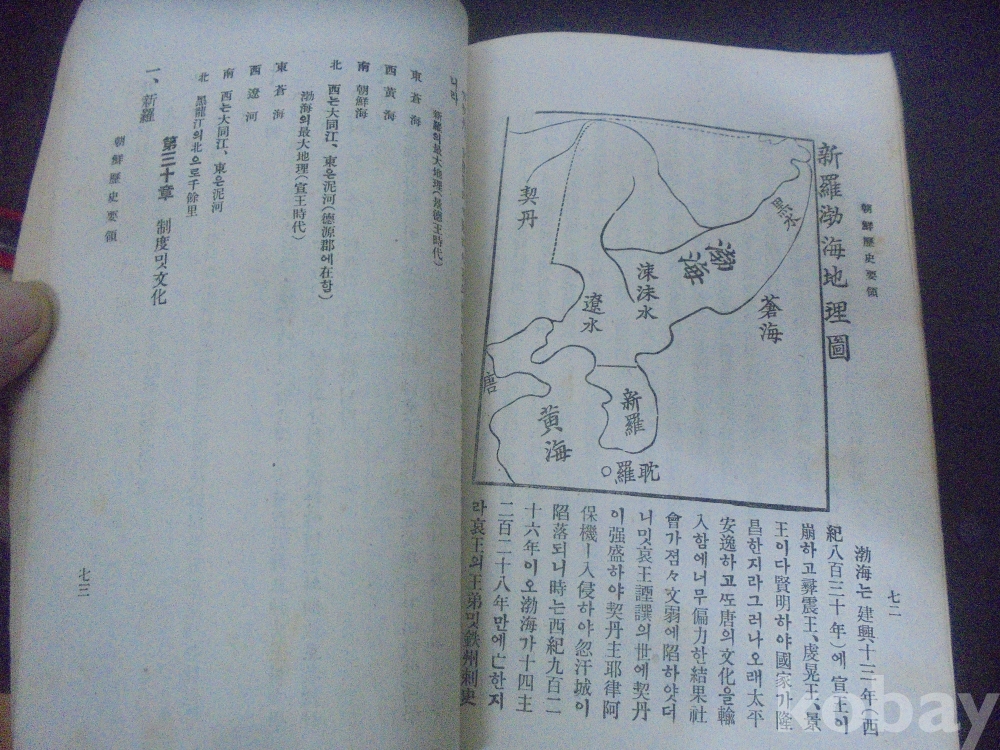 朝鮮歷史要領
新羅渤海地理圖
黑水
蒼海
渤海
涑沫水
契丹
遼水
唐
黃海
新羅
耽羅
七二
渤海는建興十三年(西
紀八百三十年)에宣王이
崩하고彛震王、虔晃王、景
王이다賢明하야國家가隆
昌한지라그러나오래太平
安逸하고또唐의文化을輸
入함에너무偏力한結果社
會가졈々文弱에陷하얏더
니밋哀王諲譔의世에契丹
이强盛하야契丹主耶律阿
保機ㅣ入侵하야忽汗城이
陷落되니時는西紀九百二
十六年이오渤海가十四主
二百二十八年만에亡한지
라哀王의王弟밋鉄州刺史
新羅의最大地理(景德王時代)
東 蒼海
西 黃海
南 朝鮮海
北 西는大同江、東은泥河(德源郡에在함)
渤海의最大地理(宣王時代)
東 蒼海
西 遼河
南 西는大同江、東은泥河
北 黑龍江의北으로千餘里
第三十章 制度밋文化
一、新羅
朝鮮歷史要領
七三
kobay